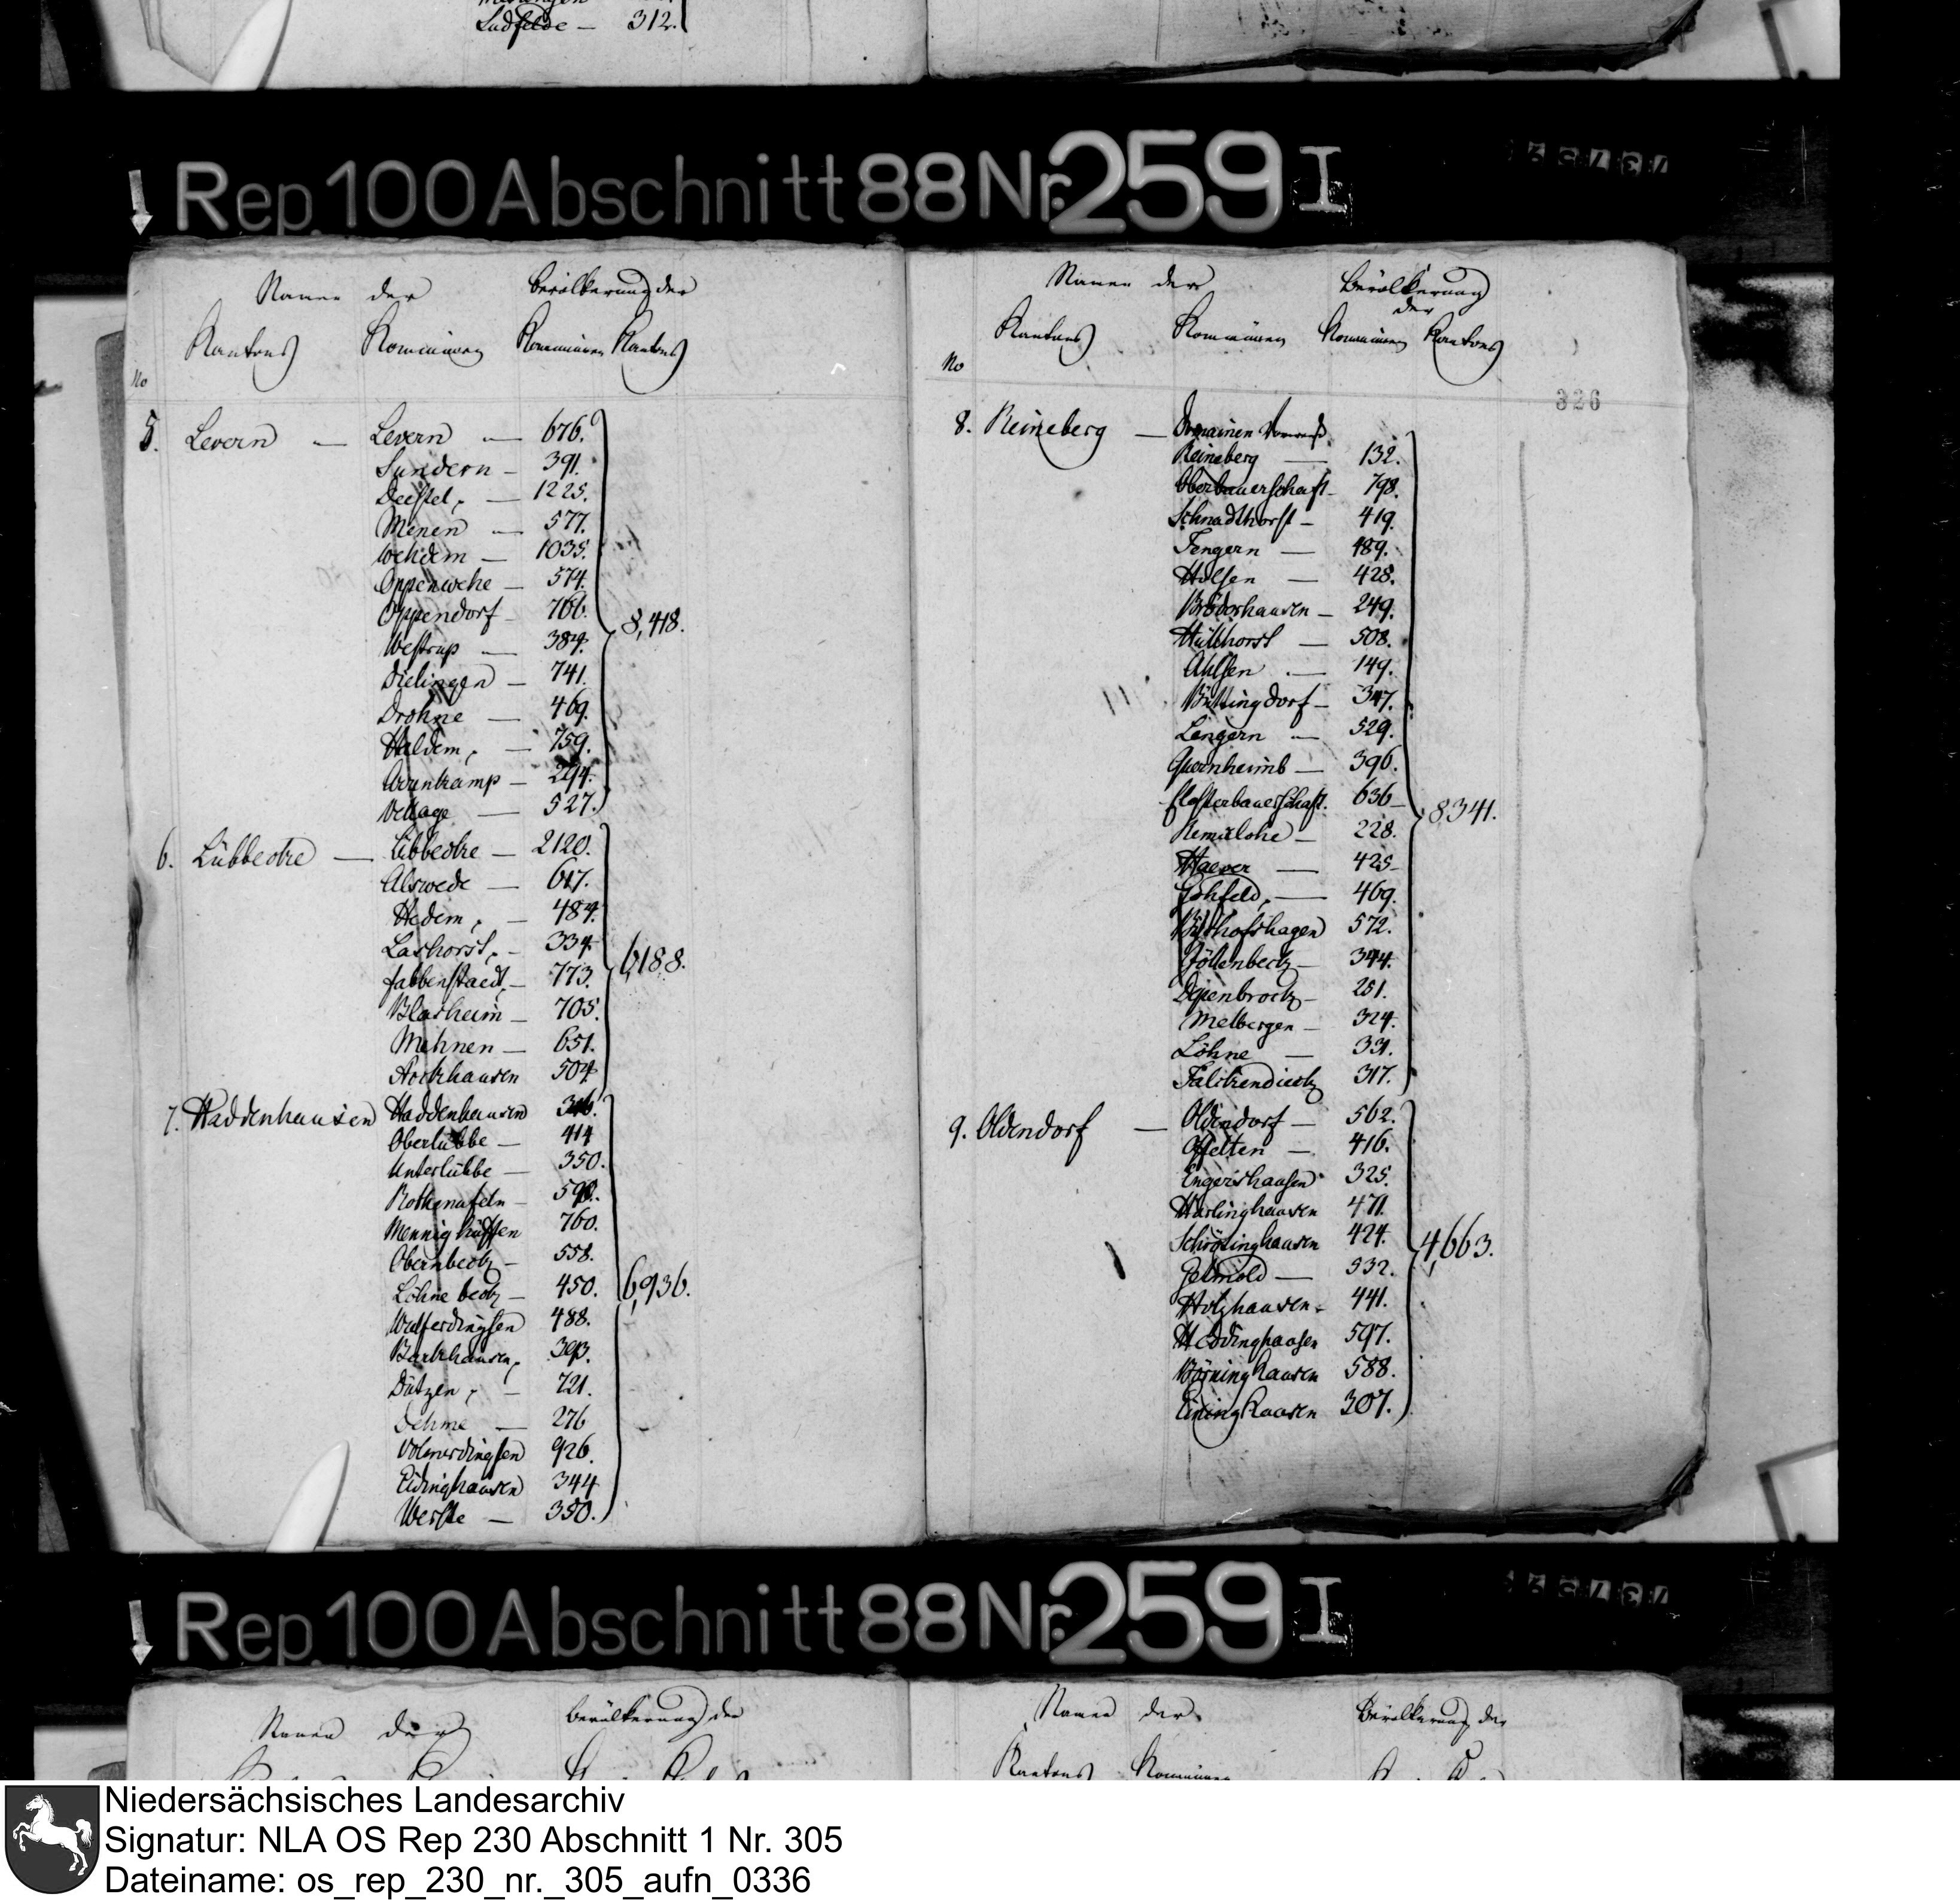 Ludfelde — 312.
Rep. 100 Abschnitt 88 Nr: 259 I
Namen der Bevölkerung der
Kantons Kommünen Kommünen Kantons
No
5. Levern — Levern — 676.
Sundern — 391.
Destel, — 1225.
Menen — 577.
Wehdem — 1035.
Oppenwehe — 574.
Oppendorf — 766.
8,418.
Westrup — 384.
Dielingen — 741.
Drohne — 469.
Haldem, — 759.
Arrenkamp — 294.
Vehlage — 527.
6. Lübbecke — Lübbecke — 2120.
Alswede — 617.
Hedem, — 484.
Lashorst, — 334
6188.
Fabbenstaedt, — 773.
Blasheim — 705.
Mehnen — 651.
Stockhausen 504
7. Haddenhausen Haddenhausen 316.
Oberlübbe — 414
Unterlübbe — 350.
Rothenufeln — 590.
Mennighüffen 760.
Obernbeck — 558.
Löhne beck — 450.
6,936.
Wulferdingsen 488.
Barkhausen, 393.
Dützen, — 721.
Dehme — 276
Volmerdingsen 926.
Eidinghausen 344
Werste — 350.
Namen der Bevölkerung
der
Kantons Kommünen Kommünen Kantons
No
326
8. Reineberg — Domainen Vorwerk
Reineberg — 132.
Oberbauerschaft — 798.
Schnadthorst — 419.
Tengern — 489.
Holsen — 428.
Bröderhausen — 249.
Hüllhorst — 508.
Ahlsen — 149.
Büttingdorf — 347.
Lengern — 529.
Quernheimb — 396.
Closterbauerschaft. 636
8341.
Remerlohe — 228.
Haever — 425
Gohfeld, — 469.
Bischofshagen 572.
Jöllenbeck — 344.
Depenbrock — 251.
Melbergen — 324.
Löhne — 331.
Falckendieck 317.
9. Oldendorf — Oldendorf — 562.
Offelten — 416.
Engershausen 325.
Harlinghausen 471.
Schröttinghausen 424.
4,663.
Getmold — 532.
Holzhausen — 441.
Heddinghausen 597.
Börninghausen 588.
Eininghausen 307.
Rep. 100 Abschnitt 88 Nr: 259 I
Namen der Bevölkerung der
Namen der Bevölkerung der
Kantons Kommünen
Niedersächsisches Landesarchiv
Signatur: NLA OS Rep 230 Abschnitt 1 Nr. 305
Dateiname: os_rep_230_nr._305_aufn_0336